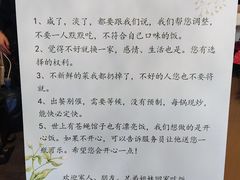 1、咸了，淡了，都要跟我们说，我们帮您调整，
不要一人默默吃，不符合自己口味的饭。
2、觉得不好就换一家，感情、生活也是。您有选
择的权利。
3、不新鲜的菜我都扔掉了，不好的人您也不要将
就。
4、出餐别催，需要等候，没有预制，每锅现炒，
能快必定快。
5、世上有苍蝇馆子也有漂亮饭，我们想做的是开
心饭。如果不开心，可以告诉服务员让他送您一
瓶可乐。希望您会开心一点！
欢迎家人、朋友、